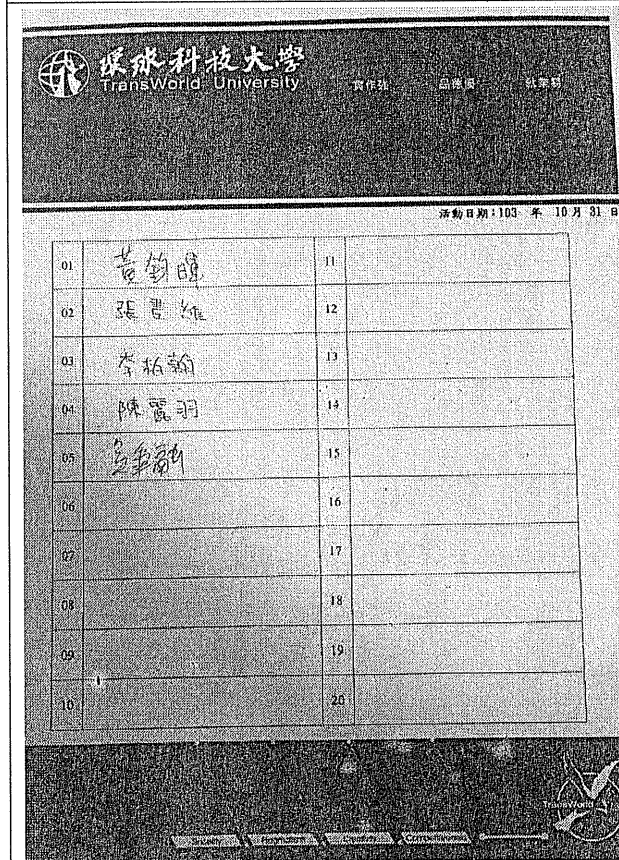 環球科技大學
TransWorld University
實作強 品德優 就業易
活動日期:103 年 10 月 31 日
01 黃鈞暐 11
02 張晋維 12
03 李祐翰 13
04 陳寵羽 14
05 15
06 16
07 17
08 18
09 19
10 20
TransWorld